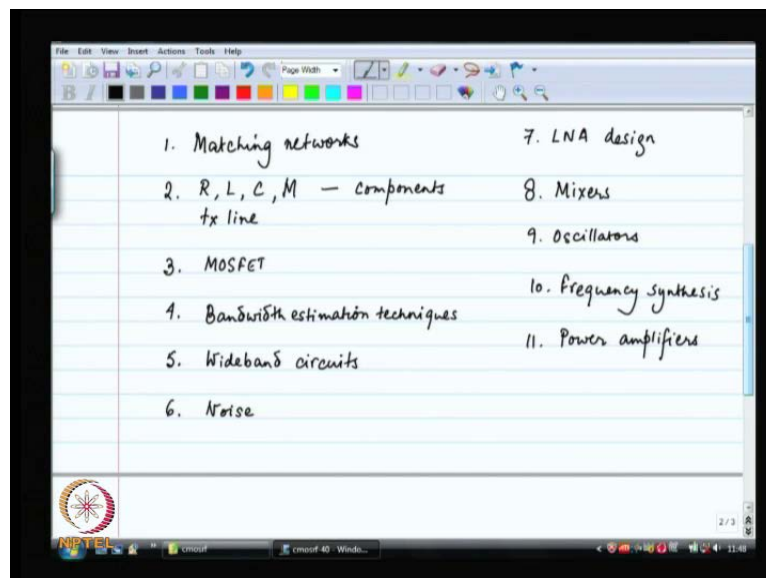 File Edit View Insert Actions Tools Help
Page Width
1. Matching networks
2. R, L, C, M — components
tx line
3. MOSFET
4. Bandwidth estimation techniques
5. Wideband circuits
6. Noise
7. LNA design
8. Mixers
9. Oscillators
10. Frequency synthesis
11. Power amplifiers
2/3
NPTEL
cmosrf
cmosrf-40 - Windo...
11:48